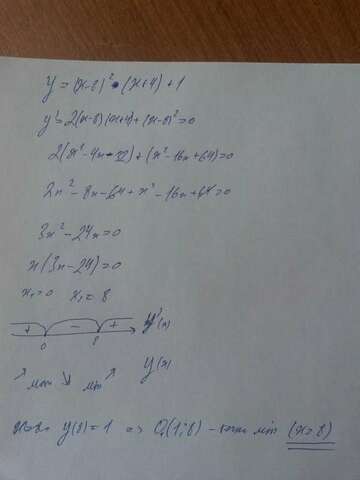 y = (x-8)² • (x+4) + 1
y' = 2(x-8)(x+4) + (x-8)² = 0
2(x² - 4x - 32) + (x² - 16x + 64) = 0
2x² - 8x - 64 + x² - 16x + 64 = 0
3x² - 24x = 0
x(3x - 24) = 0
x₁ = 0 x₂ = 8
+ - + y'(x)
0 8
y(x)
↗ max ↘ min ↗
y(8) = 1 => (1; 8) - min (x=8)